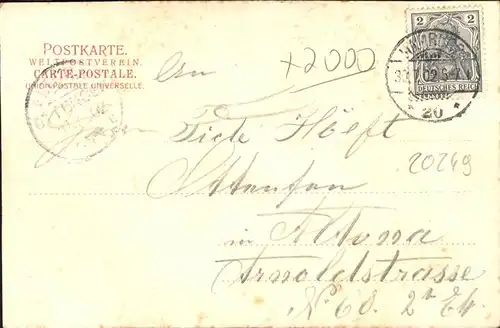 POSTKARTE.
WELTPOSTVEREIN.
CARTE-POSTALE.
UNION POSTALE UNIVERSELLE.
2 2
DEUTSCHES REICH
HAMBURG
30.7.02
* 20 *
+2000
An
Ticke Höeft
20249
Ottensen
in Altona
Arnoldstrasse
No 60. 2t Et.